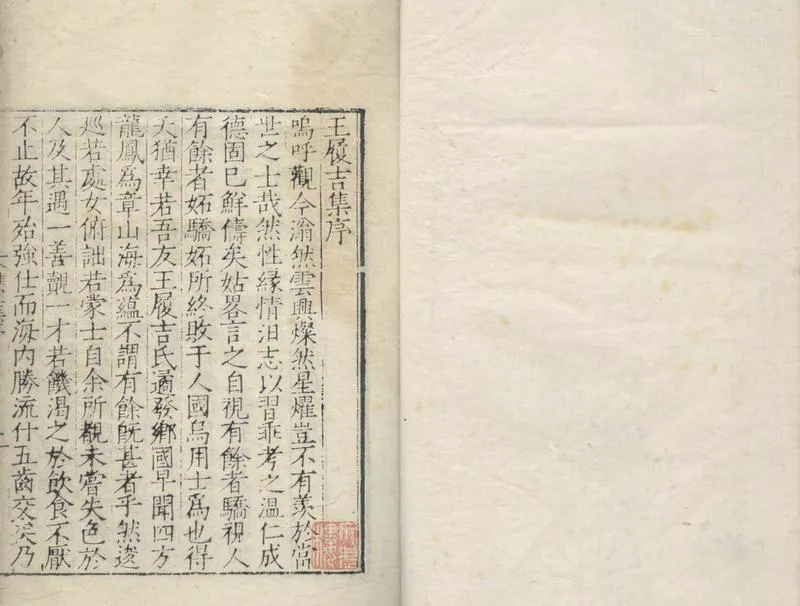 王履吉集序
嗚呼觀今滃然雲興燦然星燿豈不有羨於當
世之士哉然性緣情汩志以習乖考之溫仁成
德固已鮮儔矣姑畧言之自視有餘者驕視人
有餘者妬驕妬所終敗于人國烏用士爲也得
天猶幸若吾友王履吉氏遹發鄉國早聞四方
龍鳳爲章山海爲蘊不謂有餘旣甚者乎然逡
廵若處女俯詘若蒙士自余所覩未嘗失色於
人及其遇一善覿一才若饑渴之於飮食不厭
不止故年殆強仕而海内勝流什五齒交矣乃